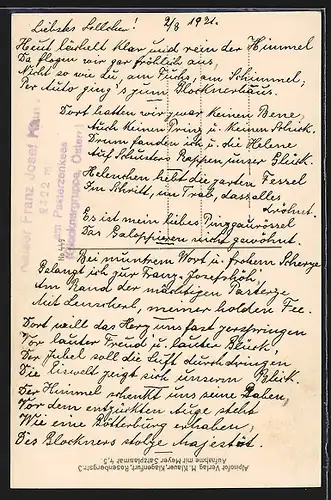 Liebstes Lollchen! 2/8 1921.
Heut lächelt klar und rein der Himmel
Da flogen wir gar fröhlich aus,
Nicht so wie du, am Fuchs, am Schimmel,
Per Auto ging's zum Glocknerhaus.
Dort hatten wir zwar keinen Bene,
Auch keinen Prinz u. keinen Schick.
Drum fanden ich u. die Helene
Auf Schusters Rappen unser Glück.
Helenchen hebt die zarten Fessel
Im Schritt, im Trab, dass alles
dröhnt.
Es ist mein liebes
Das Galoppieren nicht gewöhnt.
Bei muntrem Wort u. frohem Scherze
Gelangt ich zur Franz-Josefshöh'
Am Rand der mächtigen Pasterze
Mit Lenscherl, meiner holden Fee.
Dort will das Herz uns fast zerspringen
Vor lauter Freud u. lauter Glück,
Der Jubel soll die Luft durchdringen
Die Umwelt zeigt sich unserm Blick.
Der Himmel schenkt uns seine Gaben,
Vor dem entzückten Auge steht
Wie eine Götterburg erhaben,
Des Glockners stolze Majestät.
Franz Josef
2422 m
am Pasterzenkees
Glocknergruppe, Österr.
Alpiner Verlag H. Klauer, Klagenfurt, Rosenbergstr. 3
Aufnahme mit Meyer Satzplasmat 4,5.